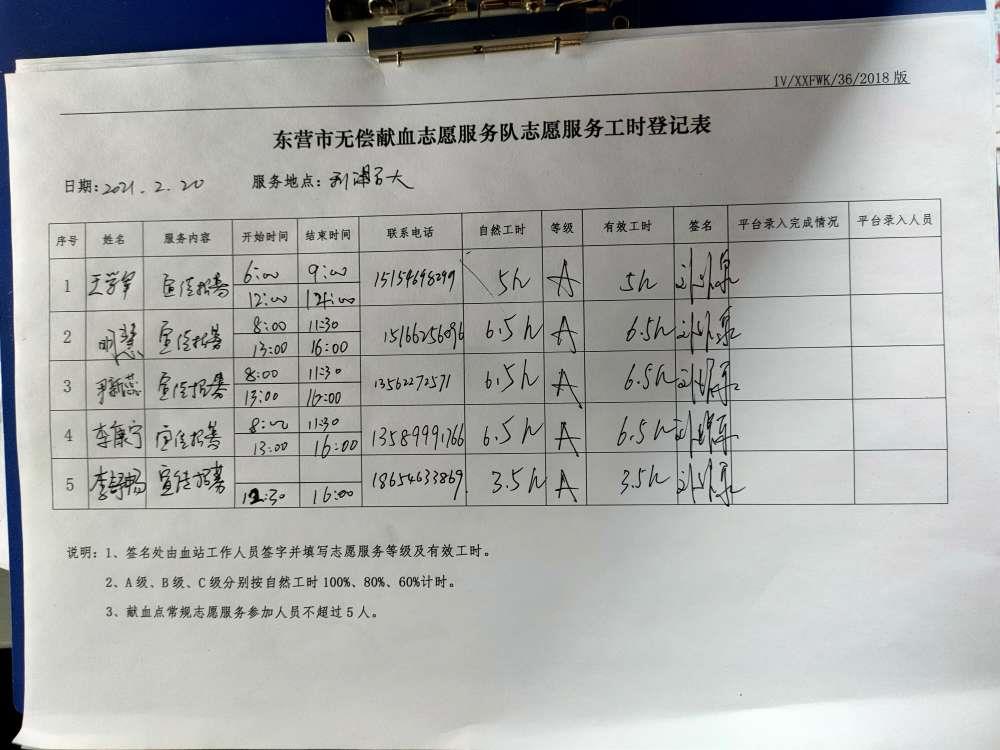 IV/XXFWK/36/2018版
东营市无偿献血志愿服务队志愿服务工时登记表
日期:2021.2.20 服务地点:利津百大
序号 姓名 服务内容 开始时间 结束时间 联系电话 自然工时 等级 有效工时 签名 平台录入完成情况 平台录入人员
1 王学军 宣传招募 6:00 9:00 15154698299 5h A 5h
12:00 14:00
2 明慧 宣传招募 8:00 11:30 15166256096 6.5h A 6.5h
13:00 16:00
3 宣传招募 8:00 11:30 13562272571 6.5h A 6.5h
13:00 16:00
4 李康宁 宣传招募 8:00 11:30 13589991766 6.5h A 6.5h
13:00 16:00
5 宣传招募 18654633869 3.5h A 3.5h
12:30 16:00
说明:1、签名处由血站工作人员签字并填写志愿服务等级及有效工时。
2、A级、B级、C级分别按自然工时100%、80%、60%计时。
3、献血点常规志愿服务参加人员不超过5人。